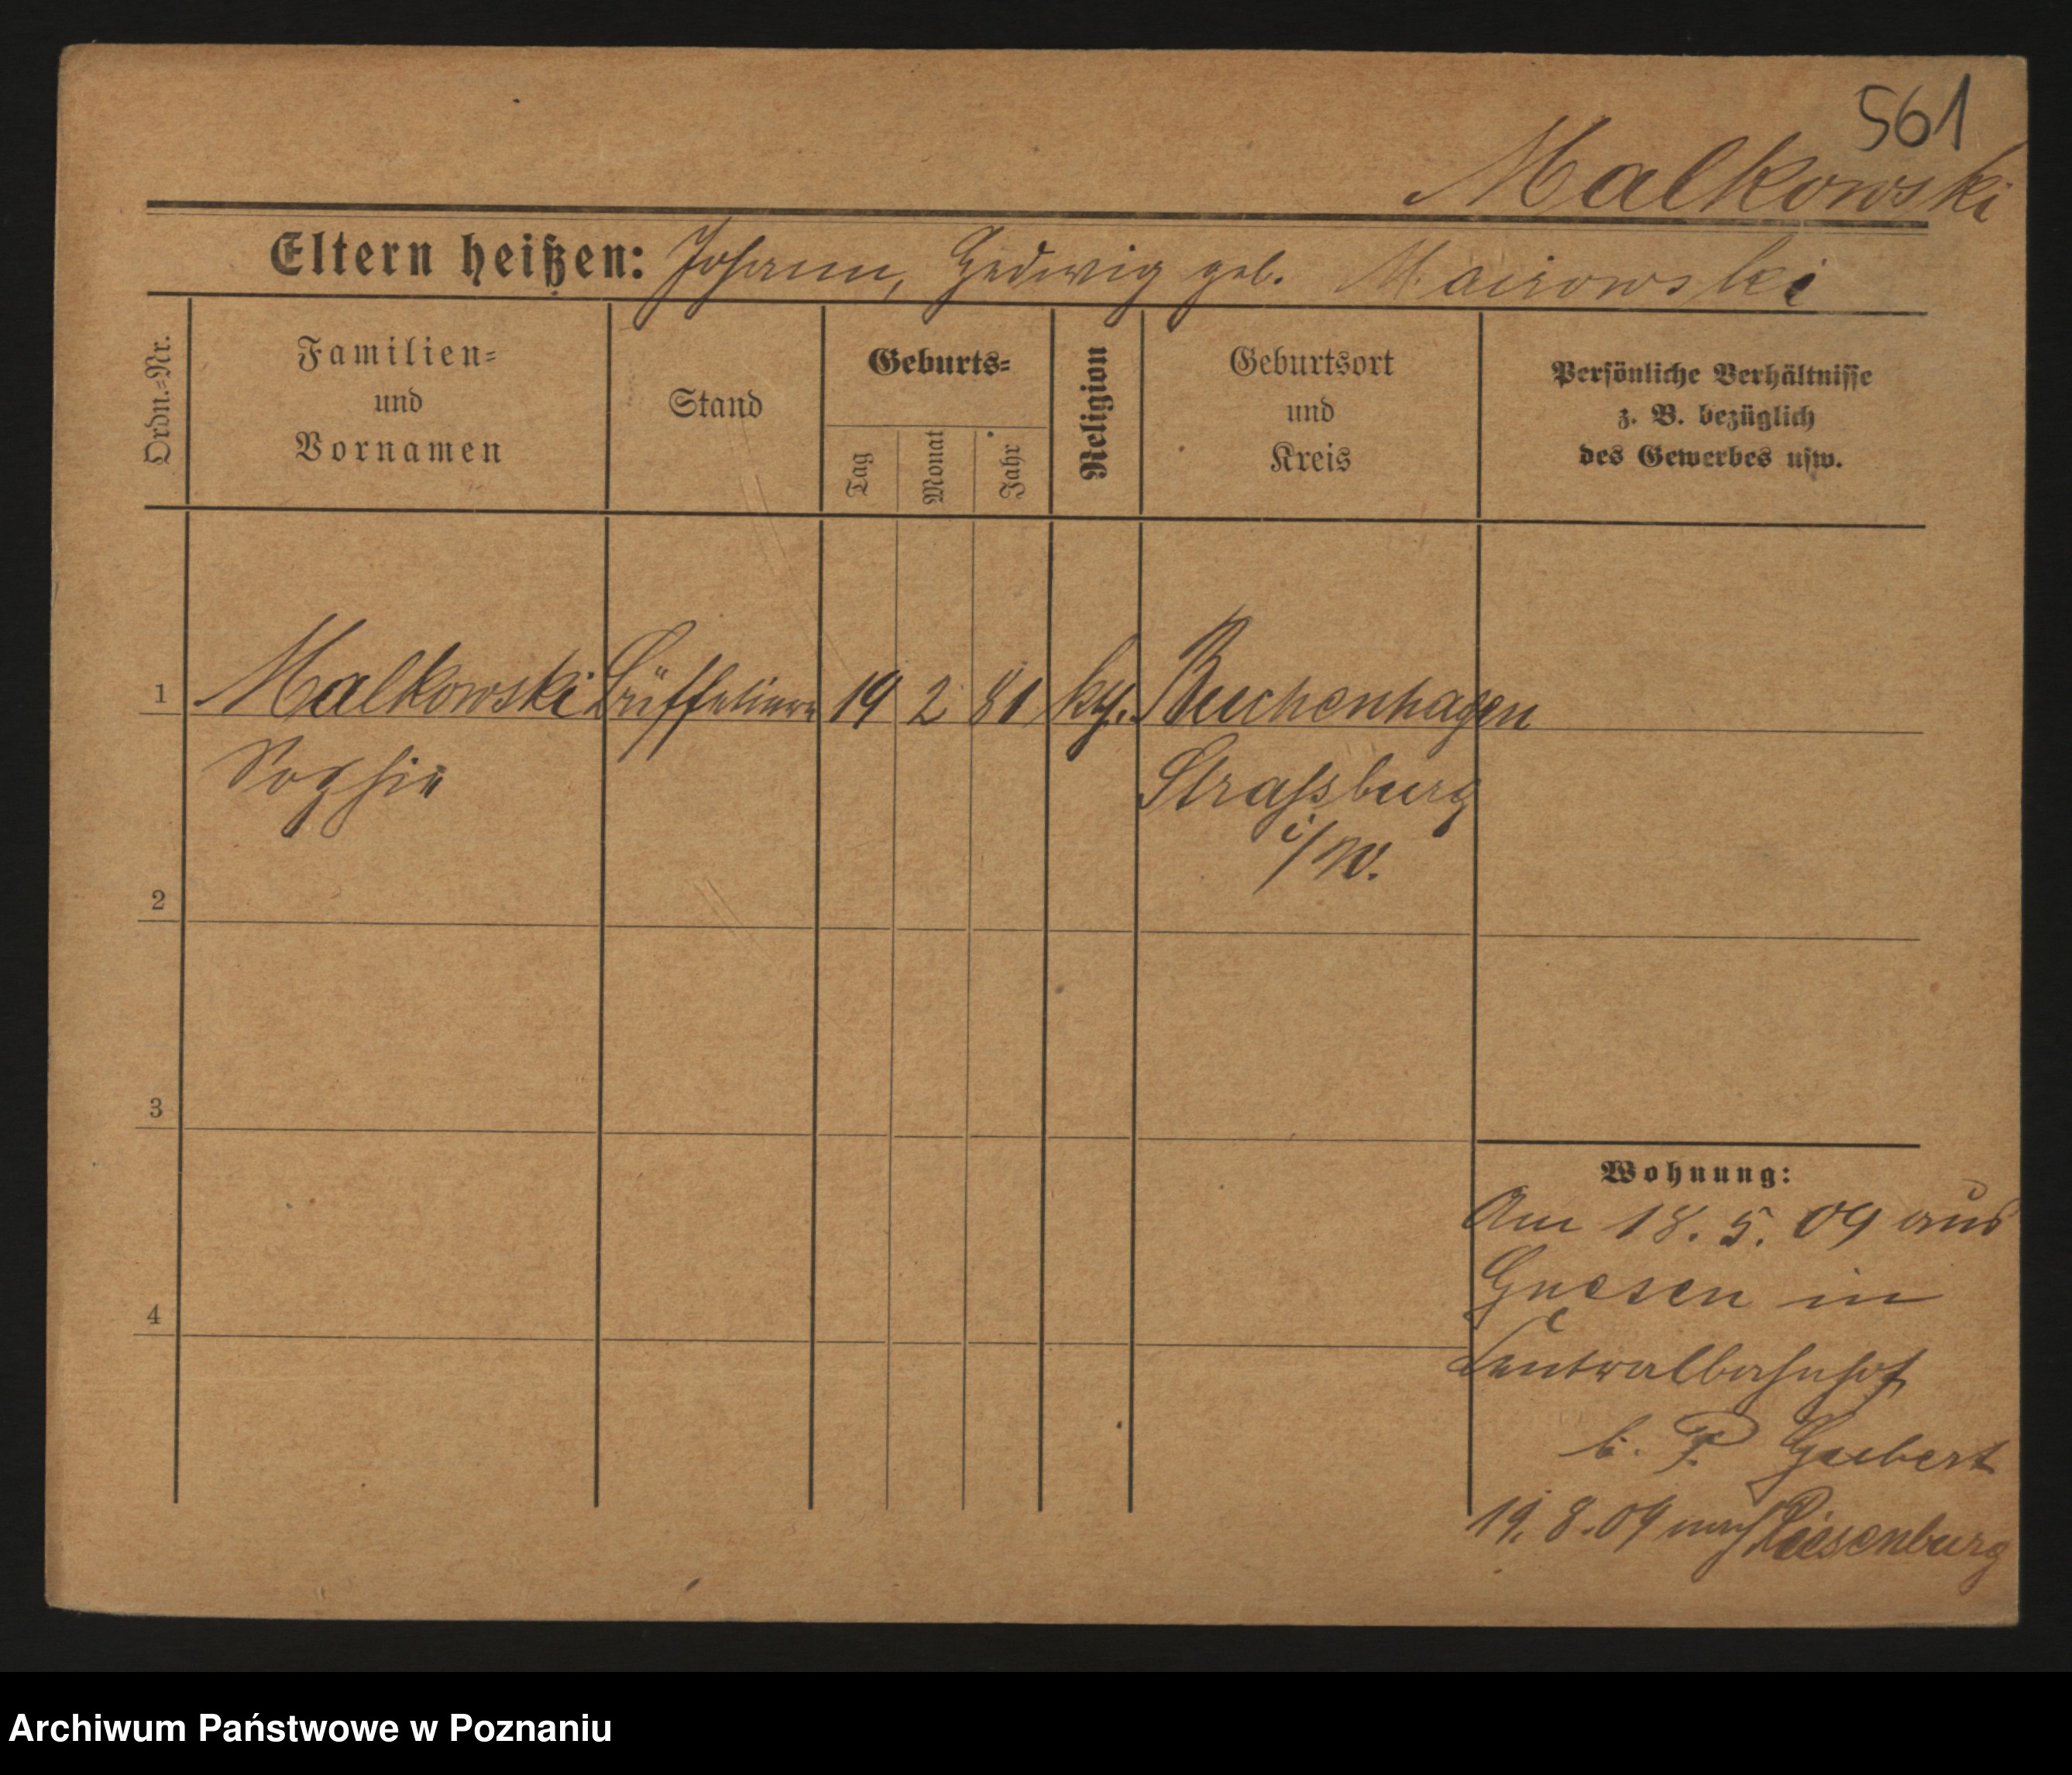 561
Malkowski
Eltern heißen: Johann, Hedwig geb. Mairowski
Ordn.=Nr.
Familien=
und
Vornamen
Stand
Geburts=
Tag
Monat
Jahr
Religion
Geburtsort
und
Kreis
Persönliche Verhältnisse
z. B. bezüglich
des Gewerbes usw.
1 Malkowski Büffetiere 19 2 81 Buchenhagen
Sophie Straßburg
i/W.
2
3
4
Wohnung:
Am 18. 5. 09 aus
Gnesen in
Centralbahnhof
b. P
19. 8. 09 nach Riesenburg
Archiwum Państwowe w Poznaniu